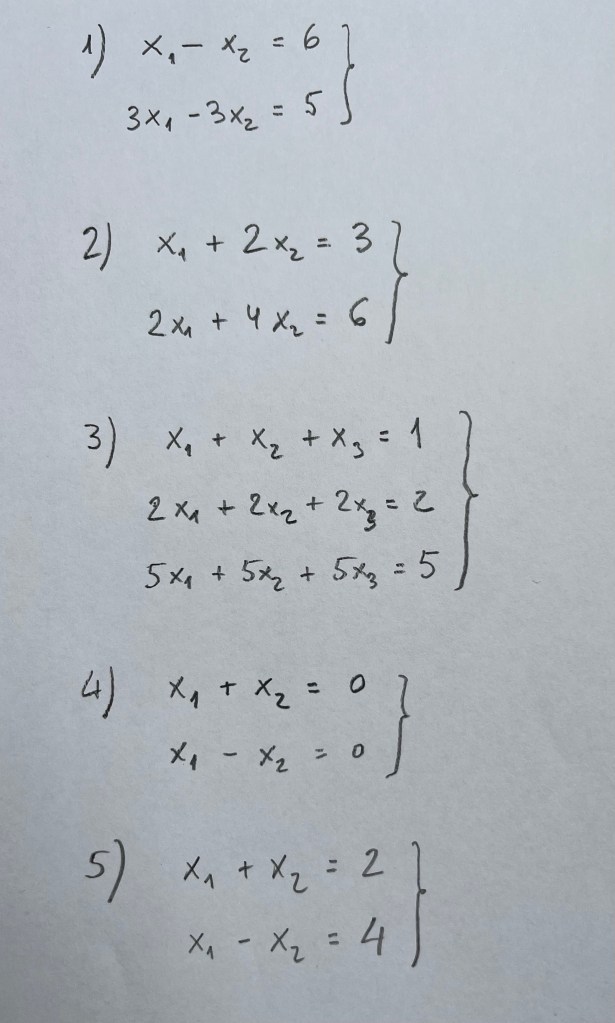 1) x₁ - x₂ = 6
3x₁ - 3x₂ = 5
2) x₁ + 2x₂ = 3
2x₁ + 4x₂ = 6
3) x₁ + x₂ + x₃ = 1
2x₁ + 2x₂ + 2x₃ = 2
5x₁ + 5x₂ + 5x₃ = 5
4) x₁ + x₂ = 0
x₁ - x₂ = 0
5) x₁ + x₂ = 2
x₁ - x₂ = 4